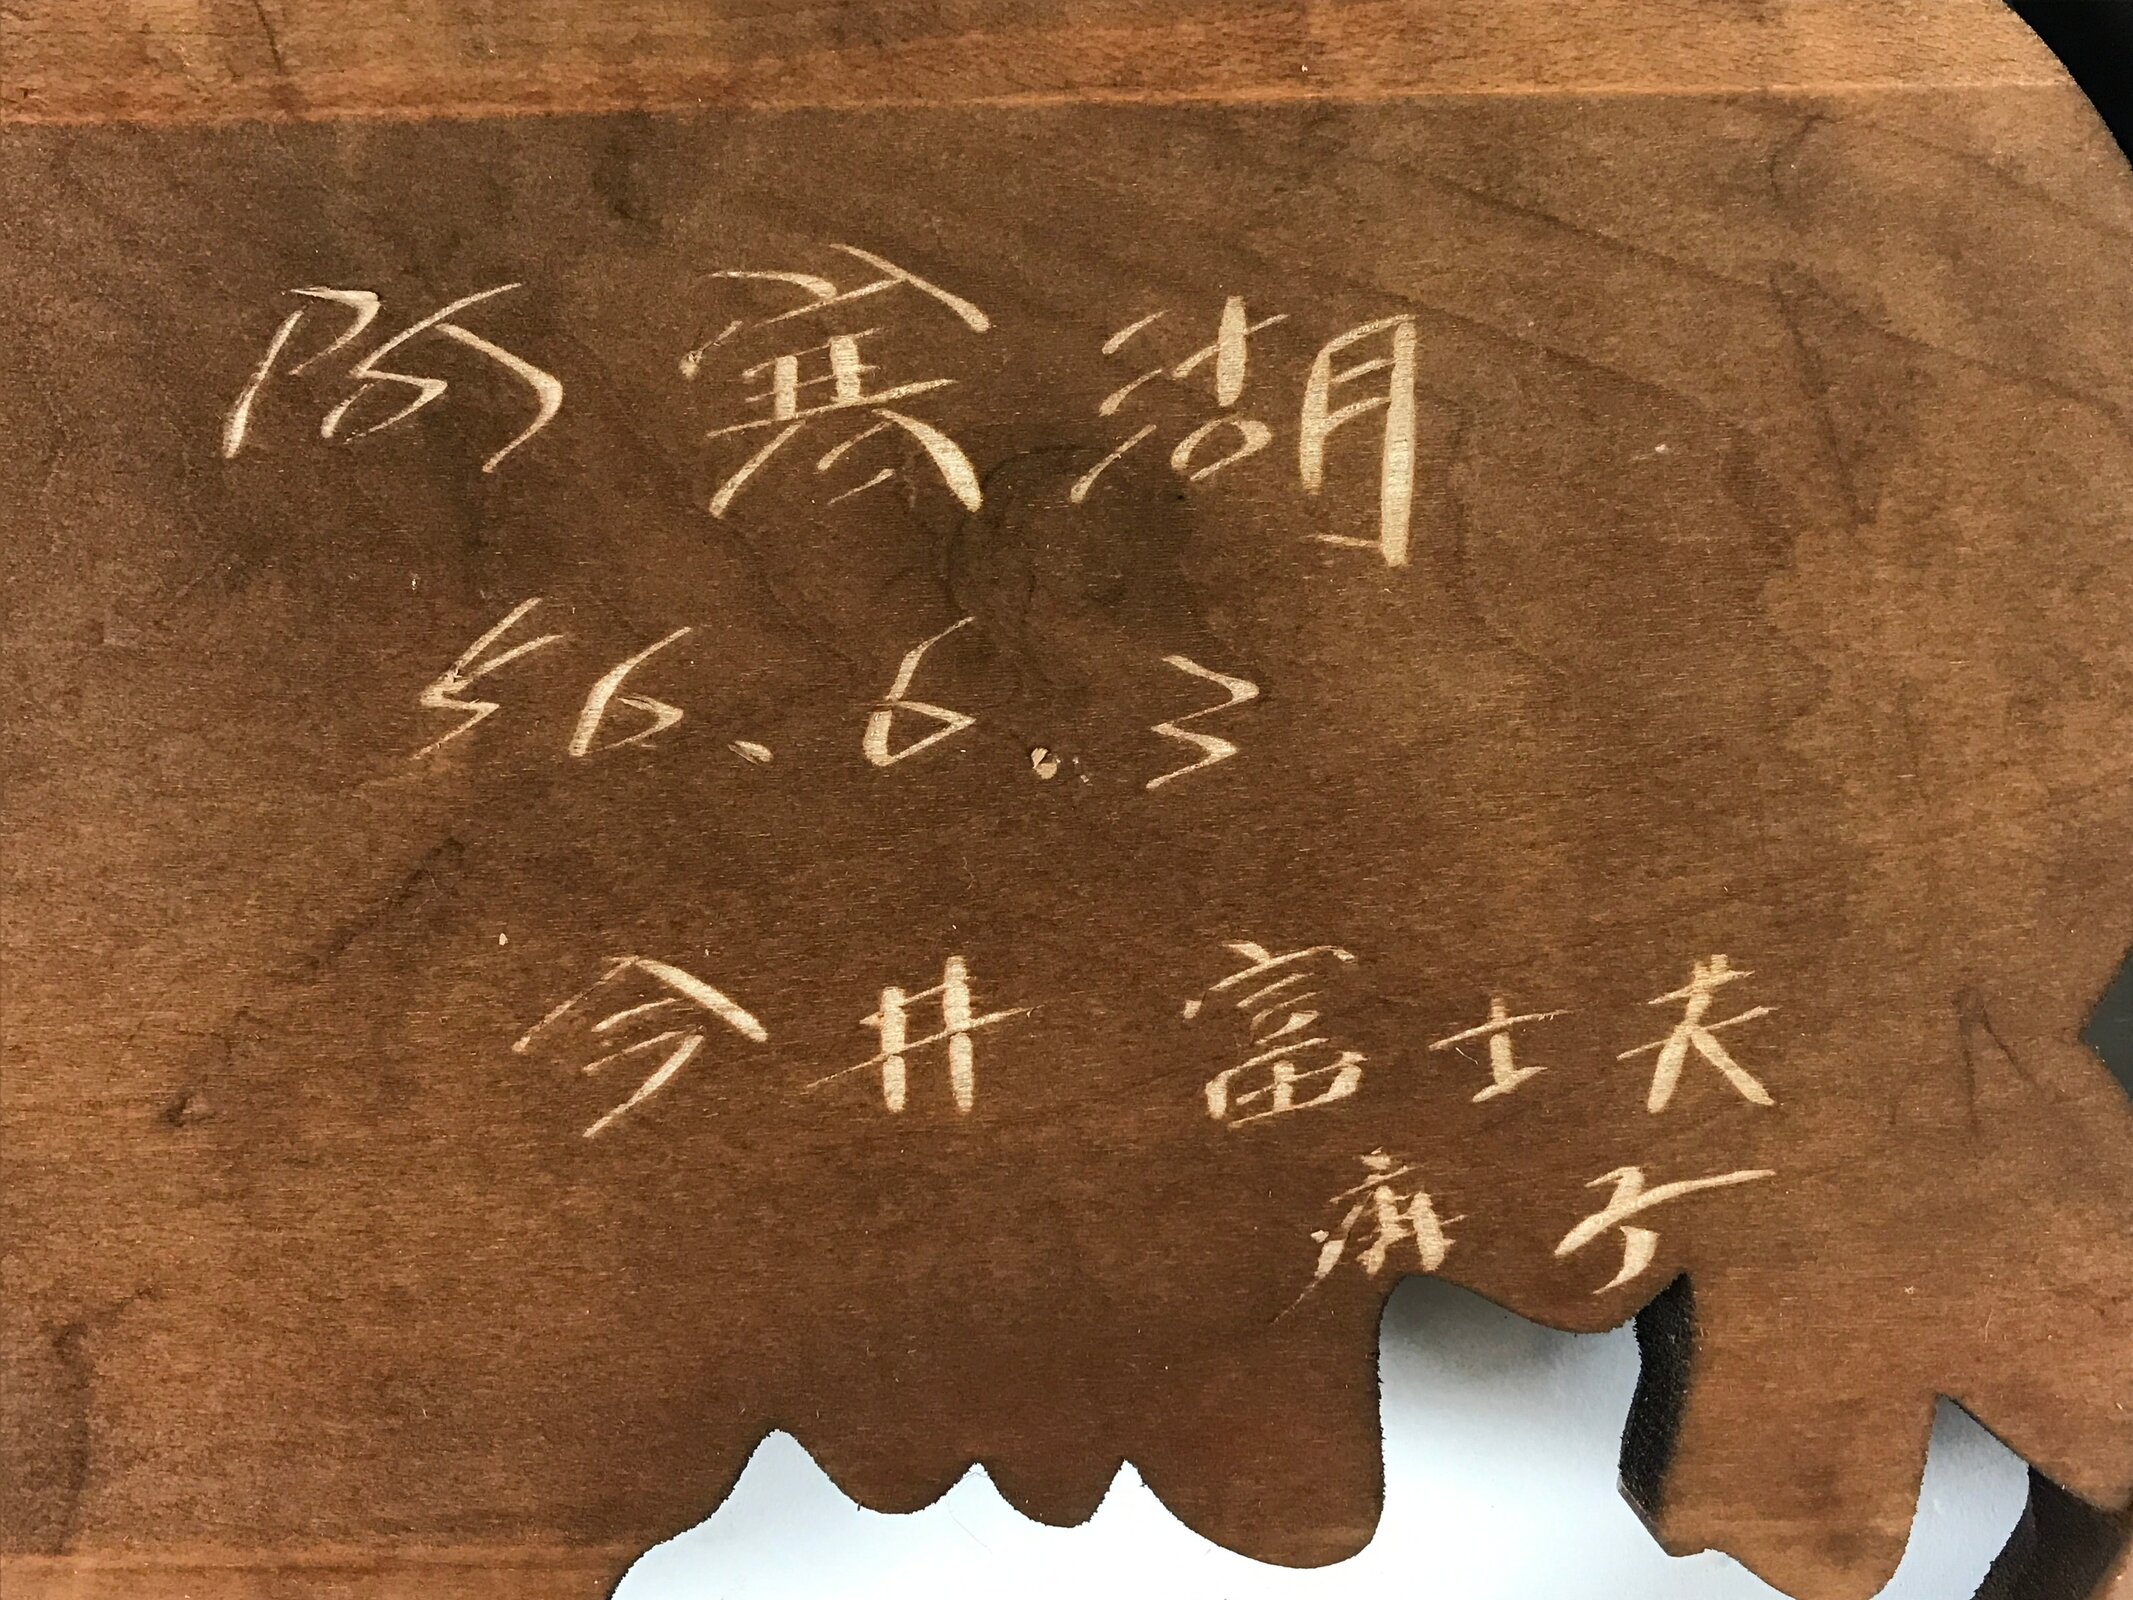 阿寒湖
56.6.3
今井 富士夫
子